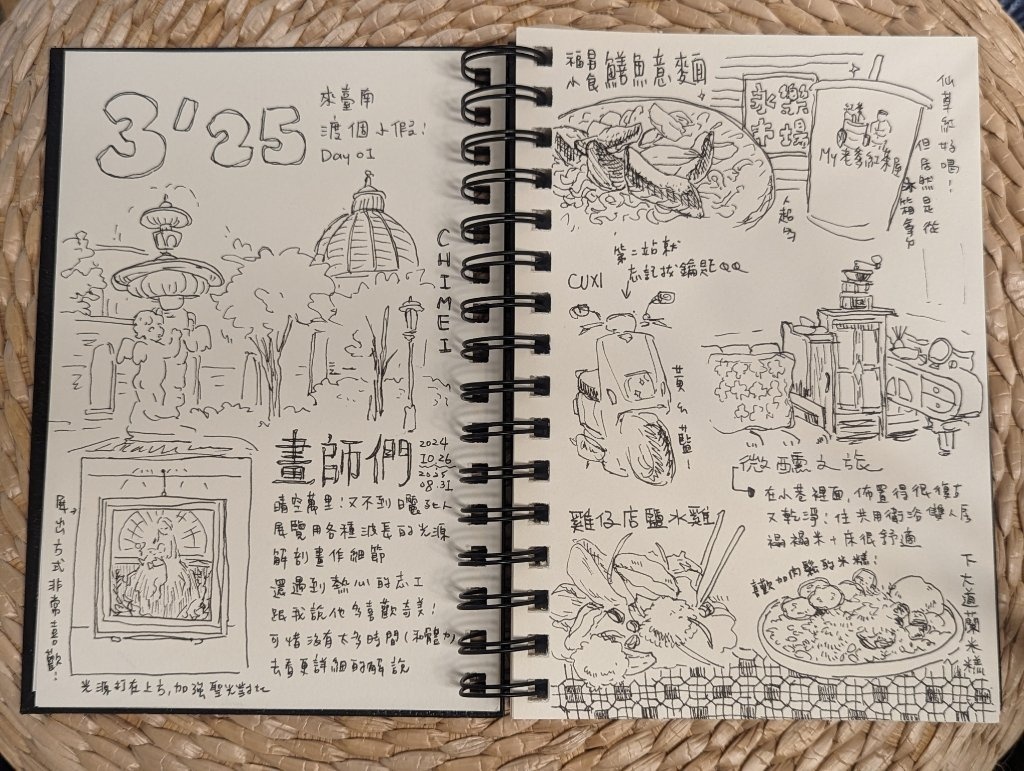 3'25
來臺南
渡個小假!
Day 01
CHIMEI
畫師們
2024
10.26
2025
08.31
晴空萬里!又不到日曬死人
展覽用各種波長的光源
解剖畫作細節
還遇到熱心的志工
跟我說他多喜歡奇美!
可惜沒有太多時間(和體力)
去看更詳細的解說
展出方式非常喜歡!
光源打在上方,加強聖光對比
福昌
小食
鱔魚意麵
永樂
市場
My老爹紅茶屋
仙草紅好喝!
但居然是從
冰箱拿的
人超多
第二站就
忘記拔鑰匙QQ
CUXI
微醺文旅
在小巷裡面,佈置得很復古
又乾淨!住共用衛浴雙人房
榻榻米+床很舒適
雞仔店鹽水雞
喜歡加肉鬆的米糕!
下大道蘭米糕